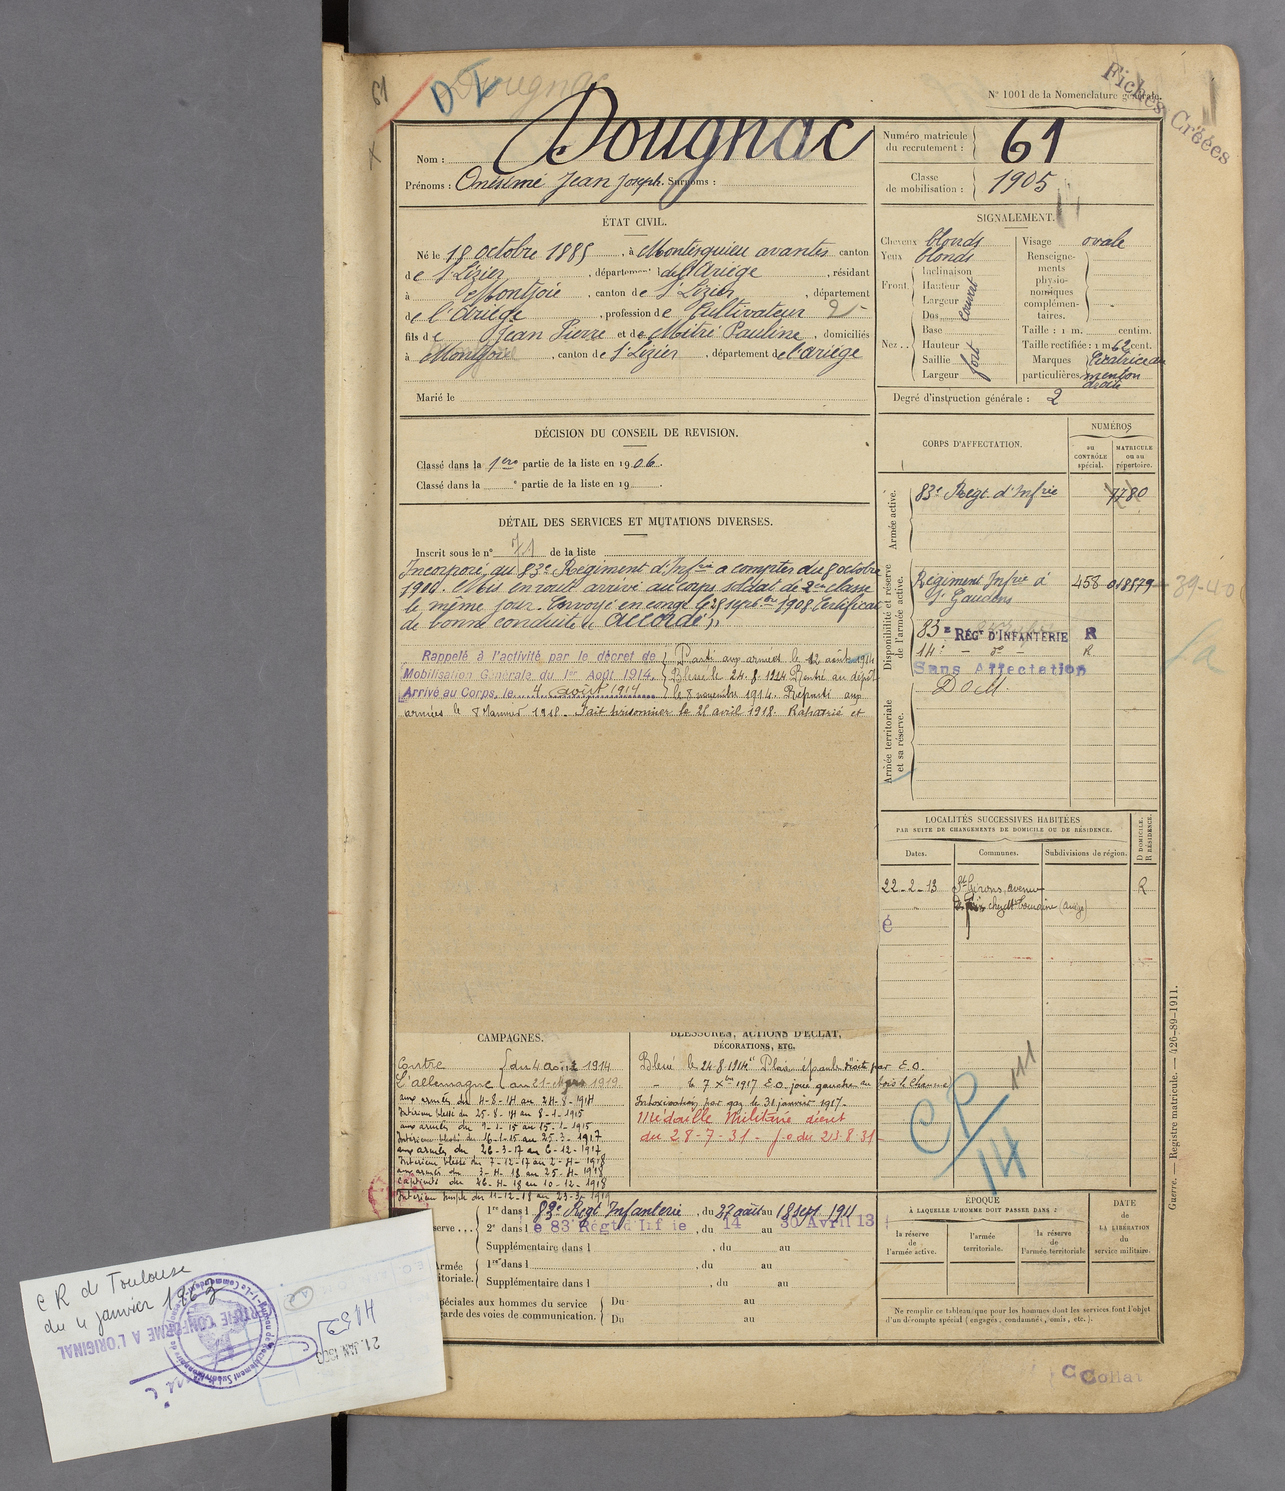 61
D
Dougnac
Fiches Créées
N° 1001 de la Nomenclature générale.
Nom : Dougnac
Prénoms : Onésime Jean Joseph. Surnoms :
Numéro matricule du recrutement : 61
Classe de mobilisation : 1905
ÉTAT CIVIL.
Né le 18 octobre 1885, à Montesquieu avantès canton
de St Lizier, département de l'Ariège, résidant
à Montjoie, canton de St Lizier, département
de l'Ariège, profession de Cultivateur 2
fils de Jean Pierre et de Mitré Pauline, domiciliés
à Montjoie, canton de St Lizier, département de l'ariège
Marié le
SIGNALEMENT.
Cheveux blonds
Yeux blonds
Front. Inclinaison
Hauteur
Largeur couvert
Nez. Dos
Base
Hauteur
Saillie fort
Largeur
Visage ovale
Renseignements physionomiques complémentaires.
Taille : 1 m. centim.
Taille rectifiée : 1 m. 62 cent.
Marques particulières Cicatrice au menton droite
Degré d'instruction générale : 2
DÉCISION DU CONSEIL DE REVISION.
Classé dans la 1ere partie de la liste en 1906.
Classé dans la ° partie de la liste en 19 .
DÉTAIL DES SERVICES ET MUTATIONS DIVERSES.
Inscrit sous le n° 71 de la liste
Incorporé au 83e Régiment d'Infrie a compter du 8 octobre
le même jour. Envoyé en congé le 28 septbre 1908 Certificat
de bonne conduite « accordé »
Rappelé à l'activité par le décret de
Mobilisation Générale du 1er Août 1914.
Arrivé au Corps, le 4 août 1914
Parti aux armées le 12 août 1914
Blessé le 24.8.1914 Rentré au dépôt
le 8 novembre 1914. Reparti aux
armées le 8 Janvier 1918. Fait prisonnier le 28 avril 1918. Rapatrié et
CORPS D'AFFECTATION.
NUMÉROS
au CONTRÔLE spécial.
MATRICULE ou au répertoire.
Armée active.
83e Régt d'Infrie 7780
Disponibilité et réserve de l'armée active.
Régiment Infrie de St Gaudens 458 018579
39-40
83e RÉGt D'INFANTERIE R
14e - do - R
Sans Affectation
DoM.
Armée territoriale et sa réserve.
LOCALITÉS SUCCESSIVES HABITÉES
PAR SUITE DE CHANGEMENTS DE DOMICILE OU DE RÉSIDENCE.
Dates.
Communes.
Subdivisions de région.
D DOMICILE. R RÉSIDENCE.
22-2-13 St Girons, avenue R
de Foix (Ariège)
é
CAMPAGNES.
Contre l'allemagne
du 4 août 1914
au 21 1919
aux armées du 4-8-14 au 24-8-1914
Intérieur blessé du 25-8-14 au 8-1-1915
aux armées du 9-1-15 au 15-1-1915
Intérieur blessé du 16-1-15 au 25-3-1917
aux armées du 26-3-17 au 6-12-1917
Intérieur blessé du 7-12-17 au 2-4-1918
aux armées du 3-4-18 au 25-4-1918
captivité du 26-4-18 au 10-12-1918
Intérieur simple du 11-12-18 au 23-3-1919
BLESSURES, ACTIONS D'ÉCLAT, DÉCORATIONS, ETC.
Blessé le 24-8-1914 "Plaie épaule droite par E.O.
- le 7 Xbre 1917 E.O. joue gauche au bois le Chaume
Intoxication par gaz le 31 janvier 1917.
Médaille Militaire décret
du 28-7-31 - J.o du 21.8.31
CP 14
111
1er dans l 83e Régt Infanterie, du 27 août au 18 sept 1911
serve 2e dans l e 83 Régt d'Inf ie, du 14 au 30 Avril 13
Supplémentaire dans l , du au
Armée
itoriale.
1er dans l , du au
Supplémentaire dans l , du au
péciales aux hommes du service
garde des voies de communication.
Du au
Du au
ÉPOQUE
À LAQUELLE L'HOMME DOIT PASSER DANS :
la réserve de l'armée active.
l'armée territoriale.
la réserve de l'armée territoriale
DATE de LA LIBÉRATION du service militaire.
Ne remplir ce tableau que pour les hommes dont les services font l'objet
d'un décompte spécial (engagés, condamnés, omis, etc.).
Guerre. — Registre matricule. — 426-89-1911.
C R de Toulouse
du 4 janvier 1963
COPIE CONFORME A L'ORIGINAL
4152
21 JAN